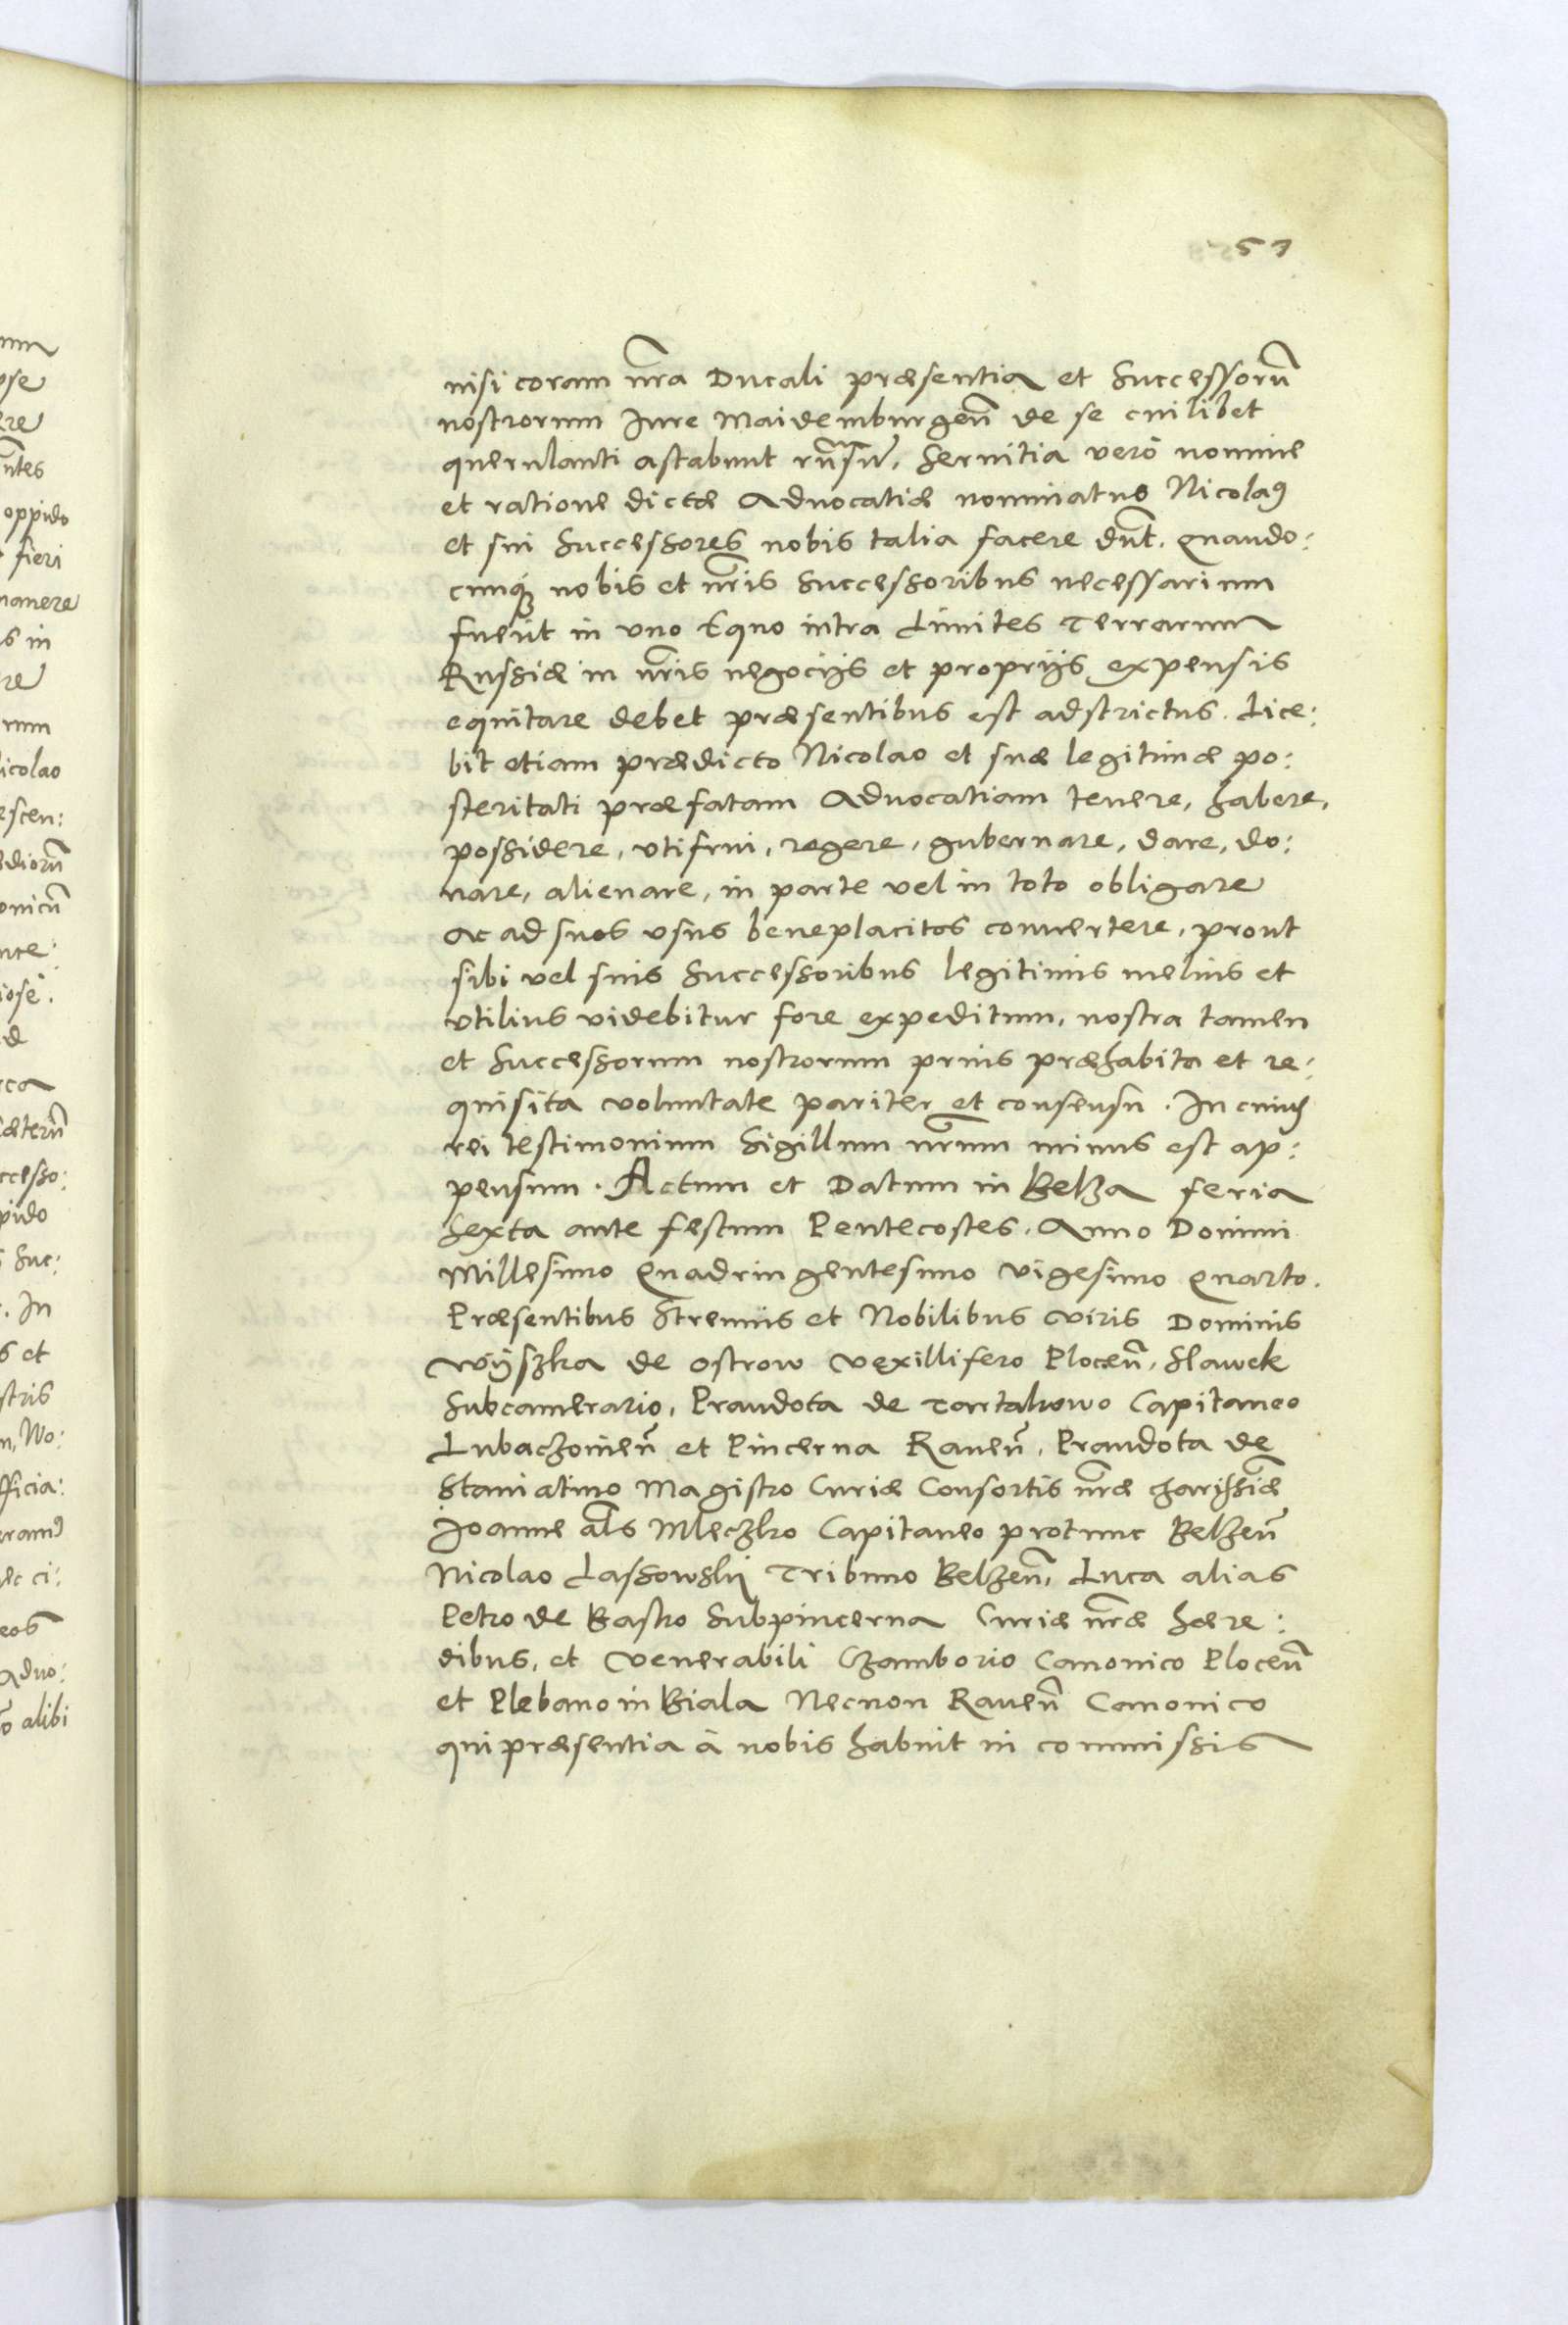 53
nisi coram nr̃a Ducali præsentia et Successorũ
nostrorum Iure Maidemburgeñ de se cuilibet
querulanti astabunt rũsuř. Seruitia verò nomine
et ratione dictæ Aduocatiæ nominatus Nicolaꝰ
et sui Successores nobis talia facere dñt. Quando:
cunqȝ nobis et nr̃is Successoribus necessarium
fuerit in vno Equo intra Limites Terrarum
Russiæ in nr̃is negocijs et proprijs expensis
equitare debet præsentibus est adstrictus. Lice:
bit etiam prædicto Nicolao et suæ legitimæ po:
steritati præfatam Aduocatiam tenere, habere,
possidere, vtifrui, regere, gubernare, dare, do:
nare, alienare, in parte vel in toto obligare
Ac ad suos vsus beneplacitos conuertere, prout
sibi vel suis Successoribus legitimis melius et
vtilius videbitur fore expeditum, nostra tamen
et Successorum nostrorum prius præhabita et re:
quisita voluntate pariter et consensu. In cuiuꝰ
rei testimonium Sigillum nr̃um minus est ap:
pensum. Actum et Datum in Belza feria
Sexta ante festum Pentecostes. Anno Domini
Millesimo Quadringentesimo Vigesimo Quarto.
Præsentibus Strenuis et Nobilibus viris Dominis
Wÿszka de Ostrow Vexillifero Ploceñ, Slawek
Subcamerario, Prandota de Tartakowo Capitaneo
Lubaczouieñ et Pincerna Raueñ, Prandota de
Staniatino Magistro Curiæ Consortis nr̃æ charissĩæ
Ioanne al̃s Mleczko Capitaneo protunc Belzeñ
Nicolao Lassowskÿ Tribuno Belzeñ, Luca alias
Petro de Bastro Subpincerna Curiæ nr̃æ hære:
dibus, et Venerabili Czamborio Canonico Ploceñ
et Plebano in Biala Necnon Raueñ Canonico
qui præsentia à nobis habuit in commissis